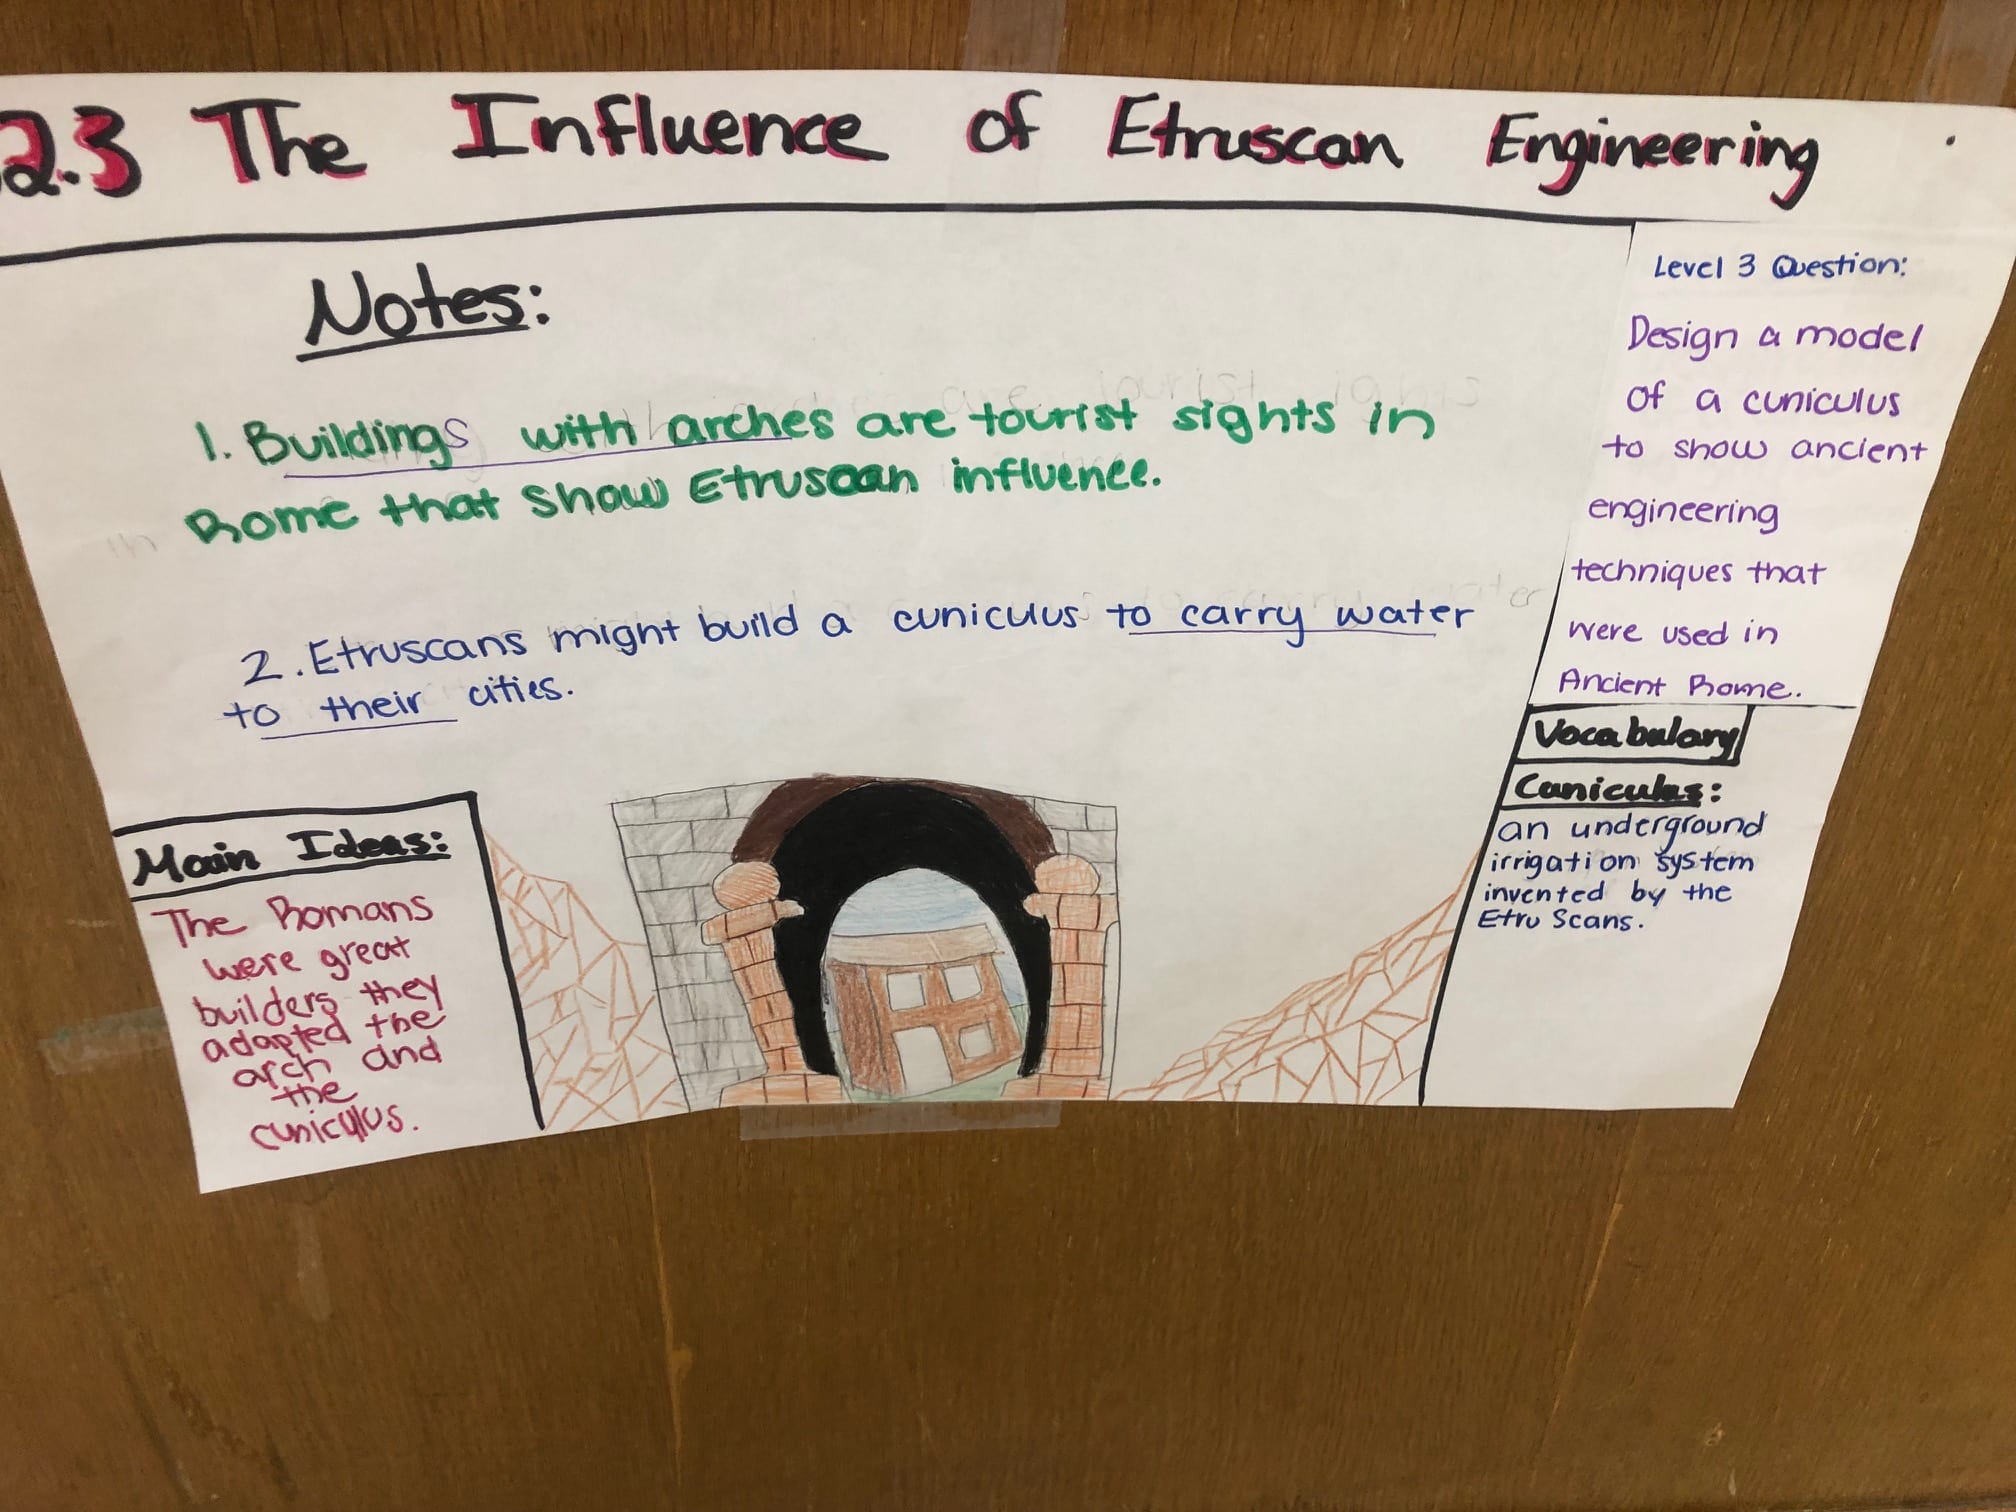 2.3 The Influence of Etruscan Engineering
Notes:
1. Buildings with arches are tourist sights in
Rome that show Etruscan influence.
2. Etruscans might build a cuniculus to carry water
to their cities.
Main Ideas:
The Romans
were great
builders they
adapted the
arch and
the
cuniculus.
Level 3 Question:
Design a model
of a cuniculus
to show ancient
engineering
techniques that
were used in
Ancient Rome.
Vocabulary
Cuniculus:
an underground
irrigation system
invented by the
Etru Scans.